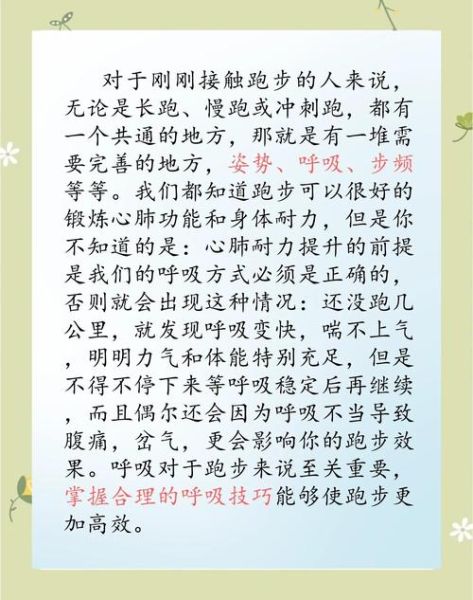 对于刚刚接触跑步的人来说，
无论是长跑、慢跑或冲刺跑，都有
一个共通的地方，那就是有一堆需
要完善的地方，姿势、呼吸、步频
等等。我们都知道跑步可以很好的
锻炼心肺功能和身体耐力，但是你
不知道的是：心肺耐力提升的前提
是我们的呼吸方式必须是正确的，
否则就会出现这种情况：还没跑几
公里，就发现呼吸变快，喘不上气
，明明力气和体能特别充足，但是
不得不停下来等呼吸稳定后再继续
，而且偶尔还会因为呼吸不当导致
腹痛，岔气，更会影响你的跑步效
果。呼吸对于跑步来说至关重要，
掌握合理的呼吸技巧能够使跑步更
加高效。